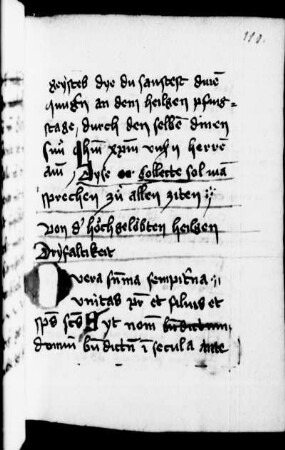 118.
geystes dye du santest dine
iungn an dem heilgen pfing=
stage, durch den selbē dinen
sun Jhm xpm vnsn herrē
am̄ Dyse collecte sol mā
sprechen zu allen ziten
von d' hochgelobten heilgen
Dryfaltikeit
O vera sūma sempitna
vnitas pr et filius et
sps scs Syt nom bndictum
domini bndictū ī secula